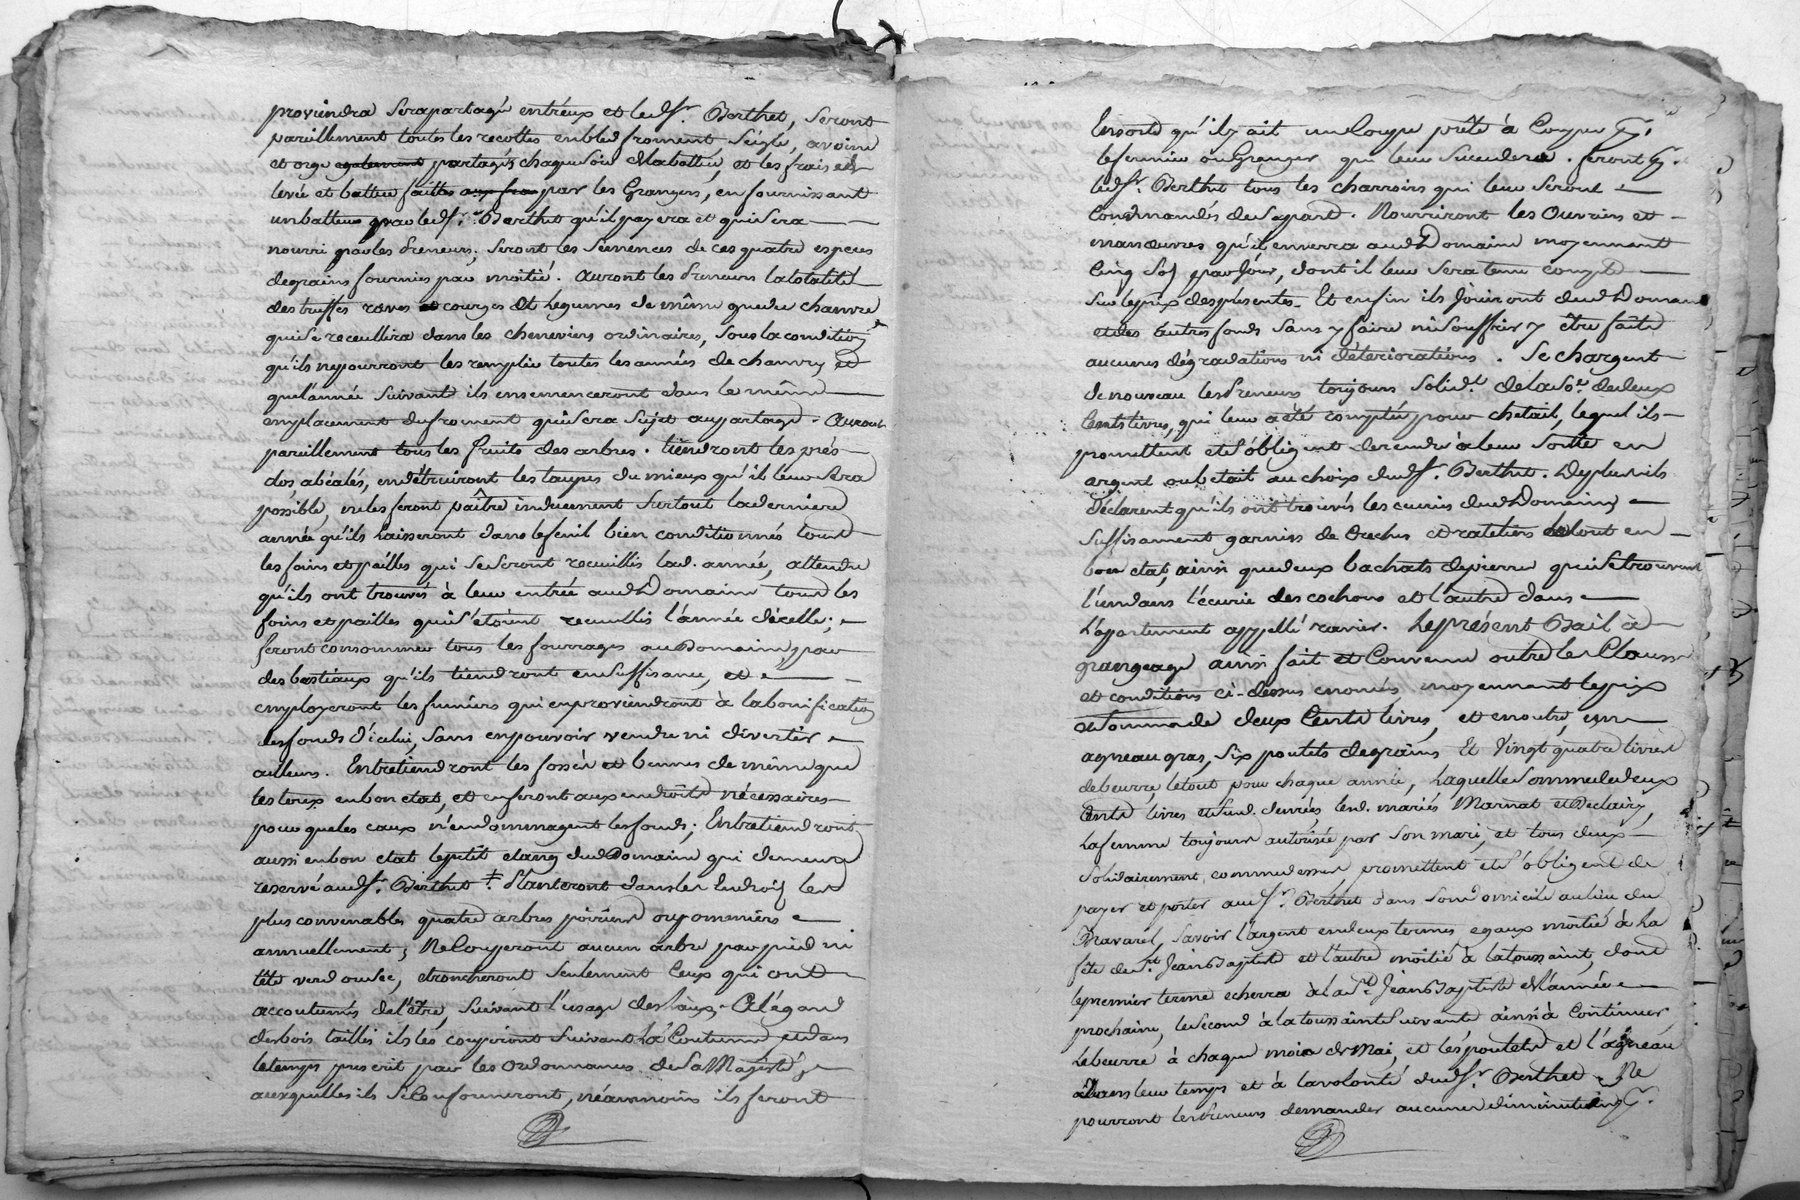 proviendra sera partagé entr'eux et led. Sr. Berthet, seront
pareillement toutes les recoltes en bled froment, seigle, avoine
et orge egalement partagés chaque fois et la battue, et les frais de
levée et batture faittes aux frais par les Grangers, en fournissant
un batteur par led. Sr. Berthet qu'il payera et qui sera
nourri par les preneurs, seront les semences de ces quatre especes
de grains fournies par moitié. Auront les preneurs la totalité
des truffes raves et courges et legumes de même que du chanvre
qui se recueillira dans les cheneviers ordinaires, sous la condition
qu'ils ne pourront les remplir toutes les années de chanvre et
que l'année suivant ils ensemenceront dans le même
emplacement du froment qui sera sujet au partage. Auront
pareillement tous les fruits des arbres. tiendront les prés
clos, en détruiront les taupes du mieux qu'il leur sera
possible, ne les feront paître induement surtout la derniere
année qu'ils laisseront dans le fenil bien conditionnés tous
les foins et pailles qui se seront recueillis lad. année, attendu
qu'ils ont trouvés à leur entrée aud. Domaine tous les
foins et pailles qui s'étoient recueillis l'année d'icelle;
feront consommer tous les fourrages au Domaine, par
des bestiaux qu'ils tiendront en suffisance, et
employeront les fumiers qui en proviendront à la bonification
des fonds d'icelui, sans en pouvoir vendre ni divertir
ailleurs. Entretiendront les fossés et bennes de même que
les terres en bon etat, et en feront aux endroits nécessaires
pour que les eaux n'endommagent les fonds; Entretiendront
aussi en bon etat le petit etang dud. Domaine qui demeure
reservé aud. Sr. Berthet ‡. Planteront dans les endroits les
plus convenables quatre arbres poiriers ou pommiers
annuellement; Ne Couperont aucun arbre par pied ni
tête verd ou sec, etroncheront seulement ceux qui ont
accoutumés de l'être, suivant l'usage des lieux. A l'égard
des bois taillis ils les couperont suivant la Coutume et dans
le temps prescrit par les Ordonnances de Sa Majesté,
auxquelles ils se Conformeront, néanmoins ils feront
Ensorte qu'il y ait une Coupe prête à Couper
le fermier ou Granger qui leur succedera. feront
led. Sr. Berthet tous les charrois qui leur seront
Commandés de sa part. Nourriront les Ouvriers et
manœuvres qu'il enverra aud. Domaine moyennant
Cinq sols par Jour, dont il leur sera tenu compte
sur le prix des présentes. Et enfin ils Jouiront dud. Domaine
et des autres fonds sans y faire ni souffrir y être faite
aucunes dégradations ni déteriorations. Se chargent
de nouveau les Preneurs toujours solidt. de la so.e de deux
Cents livres, qui leur a été comptée pour chetail, lequel ils
promettent et s'obligent de rendre à leur sortie en
argent ou betail au choix dud. Sr. Berthet. De plus ils
Déclarent qu'ils ont trouvés les ecuries dud. Domaine
suffisament garnies de Creches et rateliers le tout en
bon etat, ainsi que deux bachats de pierre qui se trouvent
l'un dans l'écurie des cochons et l'autre dans
l'appartement appellé ravier. Le présent Bail à
grangeage ainsi fait et Convenu outre les Clauses
et conditions ci-dessus enoncées moyennant le prix
et somme de deux Cents livres, et en outre, un
agneau gras, six poulets de grains Et Vingt quatre livres
de beurre le tout pour chaque année, Laquelle somme de deux
Cents livres et susd. denrées, lesd. mariés Marnat et Declairy,
La femme toujours autorisée par son mari, et tous deux
Solidairement, comme dessus promettent et s'obligent de
payer et porter aud. Sr. Berthet dans son domicile au lieu du
Mavarel, savoir l'argent en deux termes egaux moitié à la
fête de St. Jean Baptiste et l'autre moitié à la toussaint, dont
le premier terme echerra à la St. Jean Baptiste de l'année
prochaine, le second à la toussaint suivante ainsi à Continuer,
Le beurre à chaque mois de Mai, et les poulets et l'agneau
dans leur temps et à la volonté dud. Sr. Berthet. Ne
pourront les Preneurs demander aucune diminution